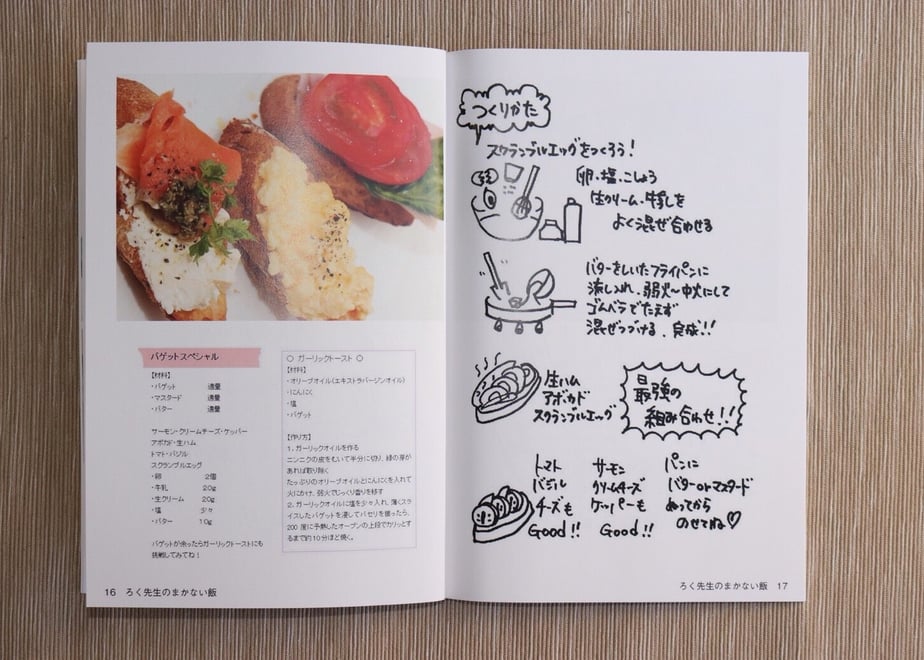 バゲットスペシャル
【材料】
・バゲット 適量
・マスタード 適量
・バター 適量
サーモン・クリームチーズ・ケッパー
アボカド・生ハム
トマト・バジル
スクランブルエッグ
・卵 2個
・牛乳 20g
・生クリーム 20g
・塩 少々
・バター 10g
バゲットが余ったらガーリックトーストにも
挑戦してみてね！
○ ガーリックトースト ○
【材料】
・オリーブオイル(エキストラバージンオイル)
・にんにく
・塩
・バゲット
【作り方】
1.ガーリックオイルを作る
ニンニクの皮をむいて半分に切り、緑の芽が
あれば取り除く
たっぷりのオリーブオイルとにんにくを入れて
火にかけ、弱火でじっくり香りを移す
2.ガーリックオイルに塩を少々入れ、薄くスラ
イスしたバゲットを浸してパセリを振ったら、
200度に予熱したオーブンの上段でカリッとす
るまで約10分ほど焼く。
16 ろく先生のまかない飯
つくりかた
スクランブルエッグをつくろう！
卵・塩・こしょう
生クリーム・牛乳を
よく混ぜ合わせる
バターをしいたフライパンに
流し入れ、弱火〜中火にして
ゴムベラでたえず
混ぜつづける、完成!!
生ハム
アボカド
スクランブルエッグ
最強の
組み合わせ!!
トマト
バジル
チーズも
Good!!
サーモン
クリームチーズ
ケーパーも
Good!!
パンに
バターorマスタード
ぬってから
のせてね♡
ろく先生のまかない飯 17